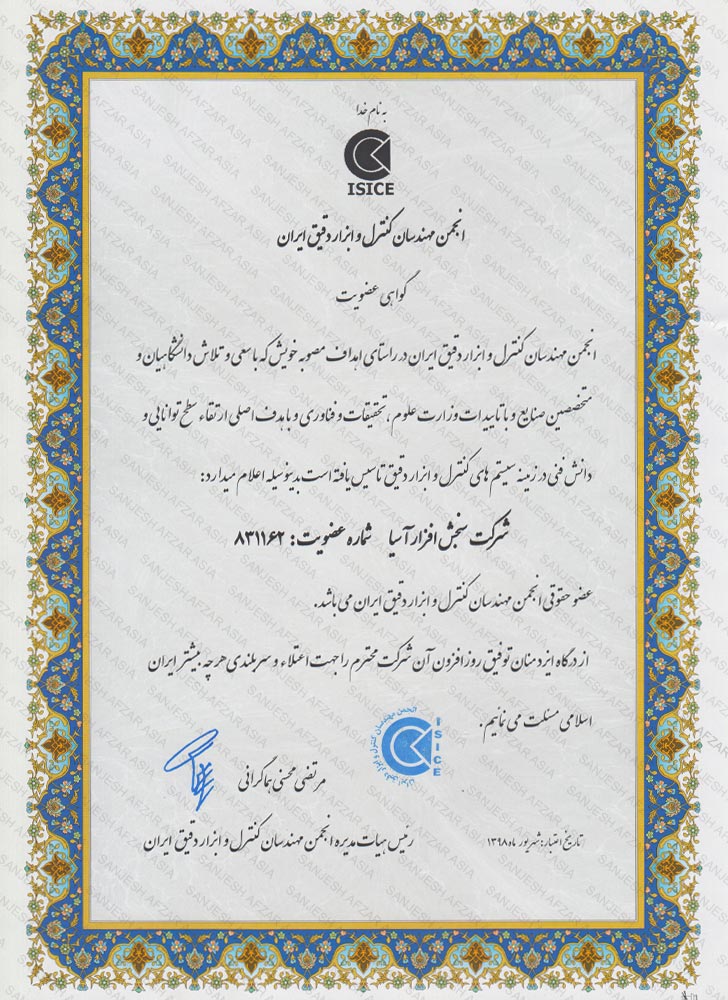 به نام خدا
ISICE
انجمن مهندسان کنترل و ابزار دقیق ایران
گواهی عضویت
انجمن مهندسان کنترل و ابزار دقیق ایران در راستای اهداف مصوبه خویش که با سعی و تلاش دانشگاهیان و
متخصصین صنایع و با تاییدات وزارت علوم، تحقیقات و فناوری و با هدف اصلی ارتقاء سطح توانایی و
دانش فنی در زمینه سیستم های کنترل و ابزار دقیق تاسیس یافته است بدینوسیله اعلام میدارد:
شرکت سنجش افزار آسیا شماره عضویت: ۸۳۱۱۶۲
عضو حقوقی انجمن مهندسان کنترل و ابزار دقیق ایران می باشد.
از درگاه ایزد منان توفیق روزافزون آن شرکت محترم را جهت اعتلاء و سربلندی هر چه بیشتر ایران
اسلامی مسئلت می نمائیم.
انجمن مهندسان کنترل و ابزار دقیق ایران
ISICE
مرتضی محسنی هماگرانی
رئیس هیات مدیره انجمن مهندسان کنترل و ابزار دقیق ایران
تاریخ اعتبار: شهریور ماه ۱۳۹۸
SANJESH AFZAR ASIA